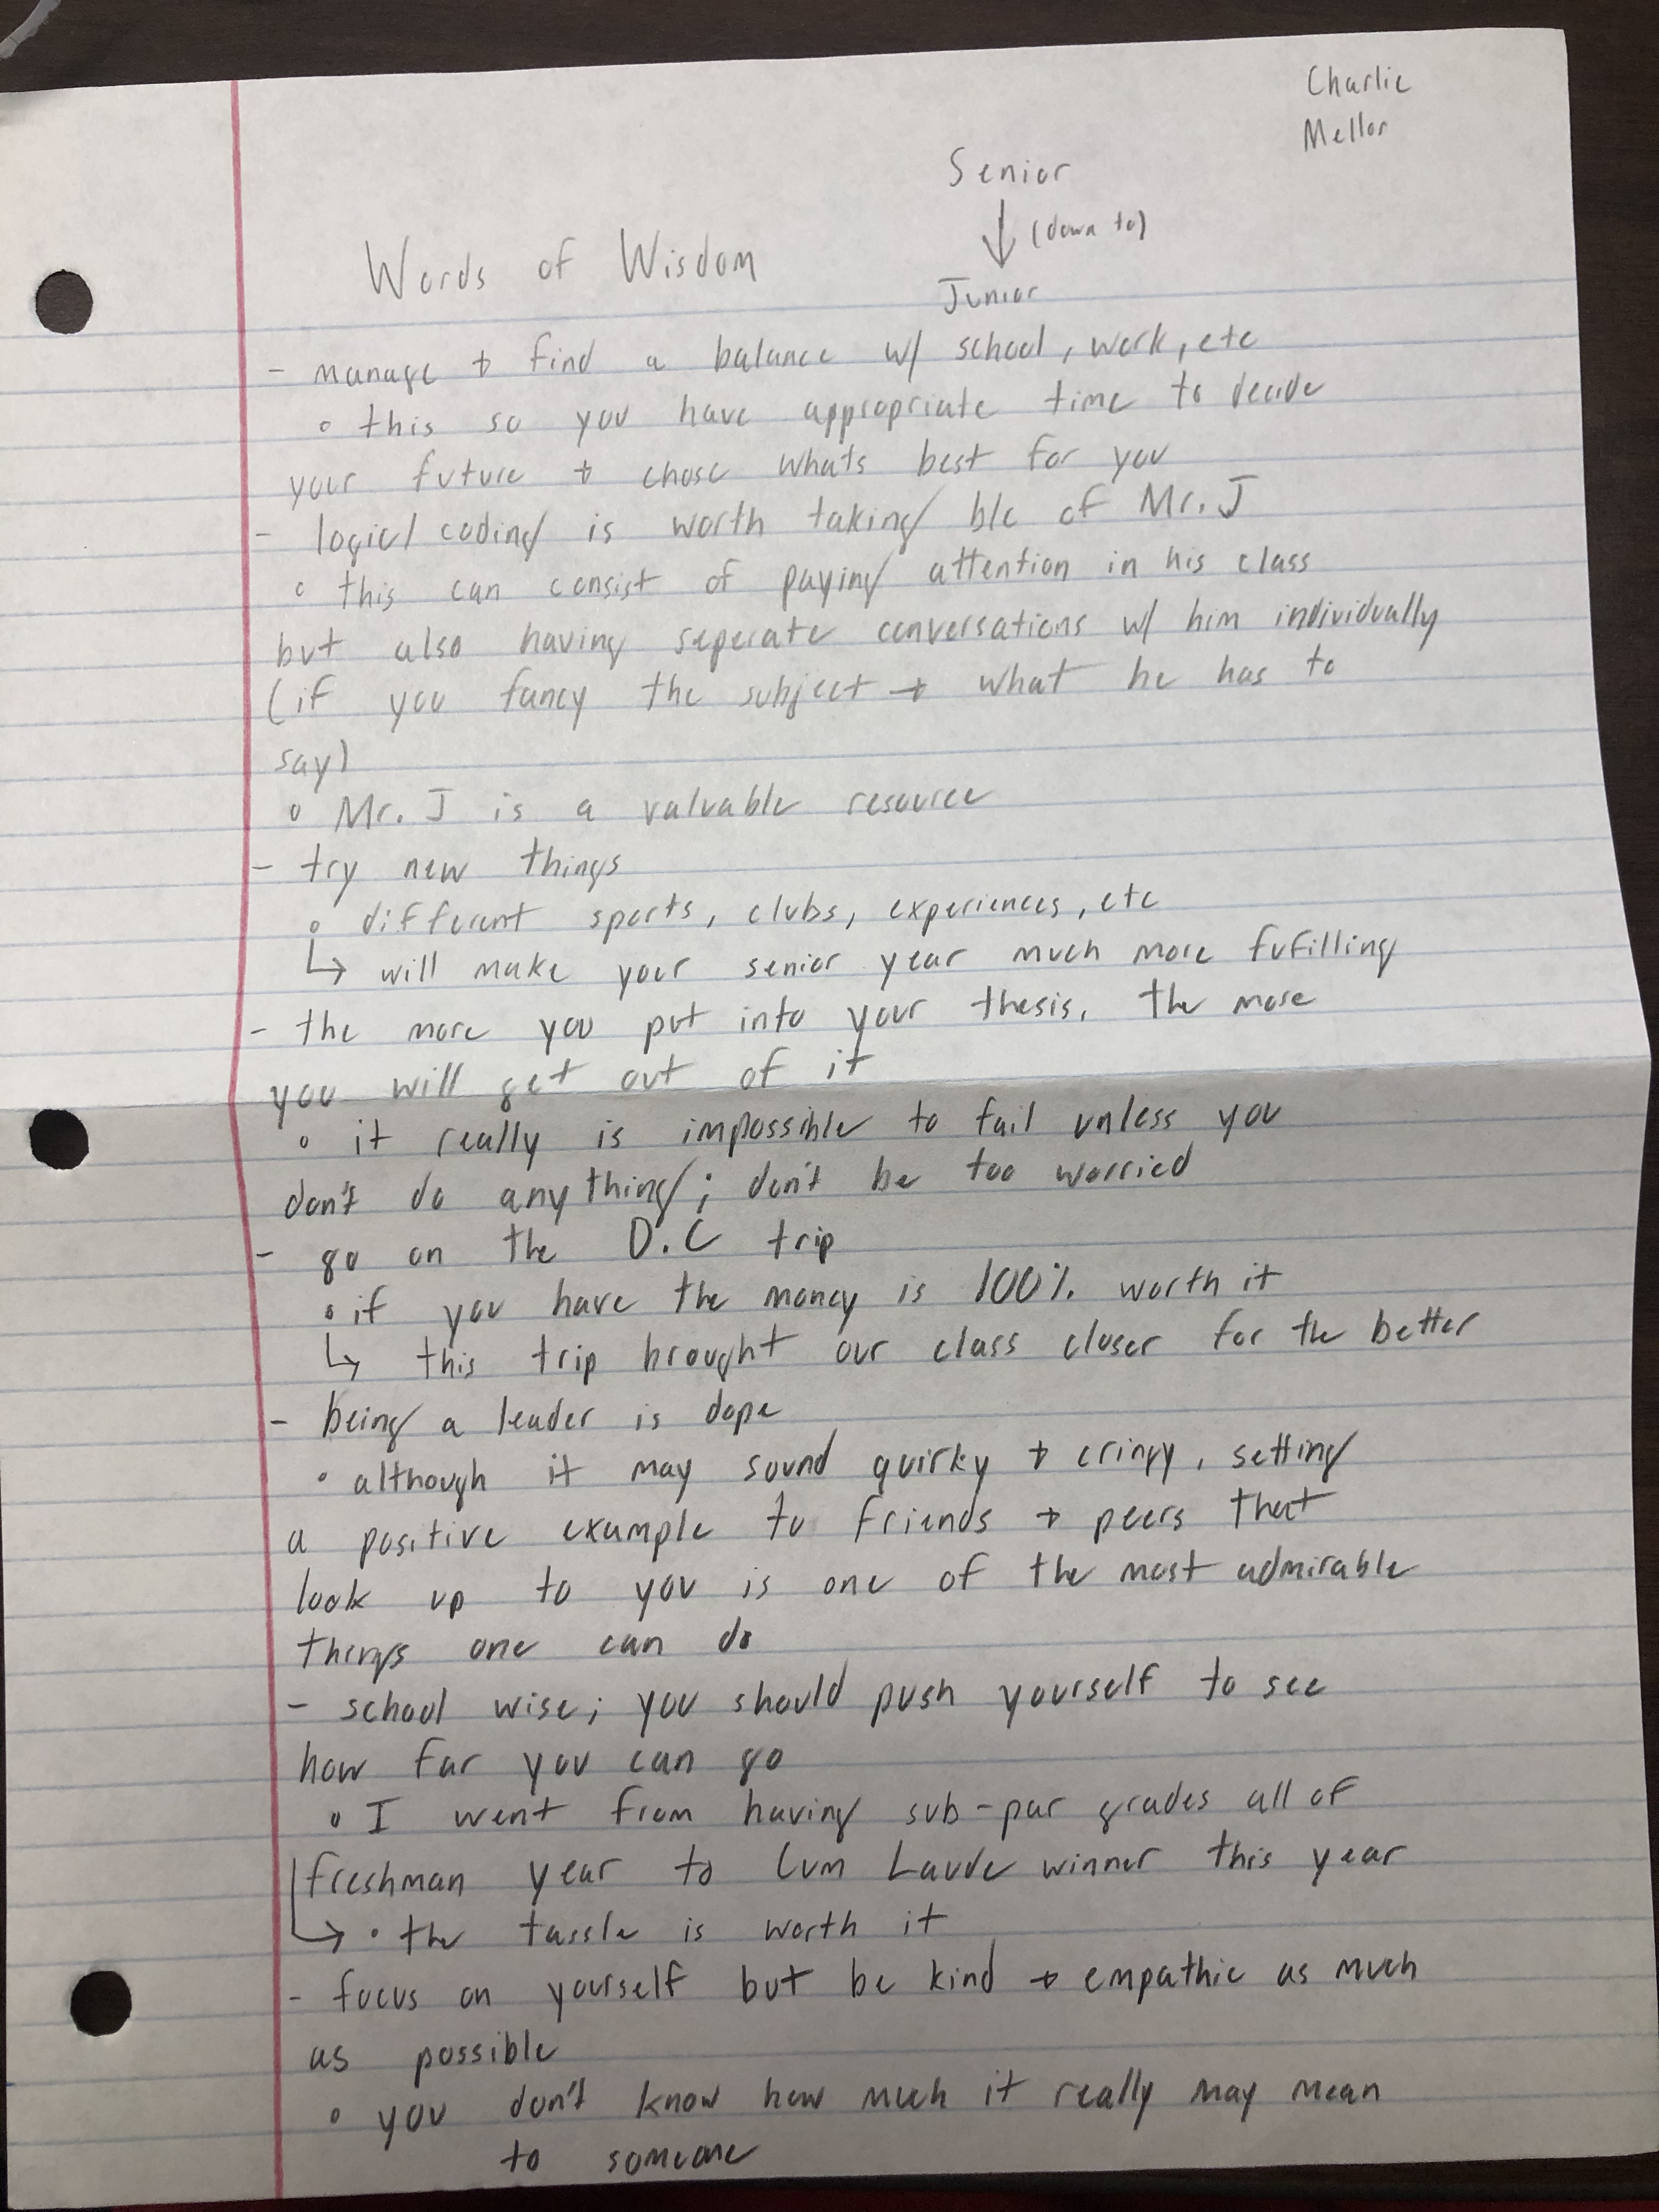 Charlie
Mellor
Senior
↓ (down to)
Junior
Words of Wisdom
- manage + find a balance w/ school, work, etc
◦ this so you have appropriate time to decide
your future + chose whats best for you
- logic/coding is worth taking b/c of Mr. J
◦ this can consist of paying attention in his class
but also having seperate conversations w/ him individually
(if you fancy the subject + what he has to
say)
◦ Mr. J is a valuable resource
- try new things
◦ different sports, clubs, experiences, etc
↳ will make your senior year much more fufilling
- the more you put into your thesis, the more
you will get out of it
◦ it really is impossible to fail unless you
don't do anything; don't be too worried
- go on the D.C trip
◦ if you have the money is 100% worth it
↳ this trip brought our class closer for the better
- being a leader is dope
◦ although it may sound quirky + cringy, setting
a positive example to friends + peers that
look up to you is one of the most admirable
things one can do
- school wise; you should push yourself to see
how far you can go
◦ I went from having sub-par grades all of
freshman year to Cum Laude winner this year
↳ • the tassle is worth it
- focus on yourself but be kind + empathic as much
as possible
◦ you don't know how much it really may mean
to someone